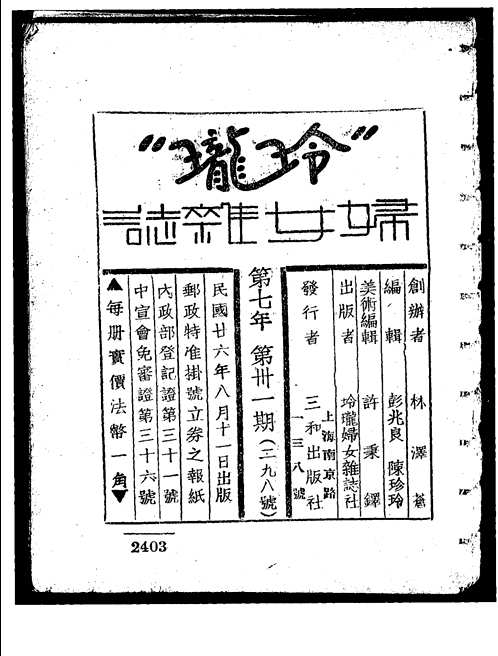 "玲瓏"
婦女雜誌
創辦者 林澤蒼
編輯 彭兆良 陳珍玲
美術編輯 許秉鐸
出版者 玲瓏婦女雜誌社
發行者 三和出版社
上海南京路
一三八號
第七年 第卅一期(二九八號)
民國廿六年八月十一日出版
郵政特准掛號立券之報紙
內政部登記證第三十一號
中宣會免審證第三十六號
▲每册實價法幣一角▼
2403